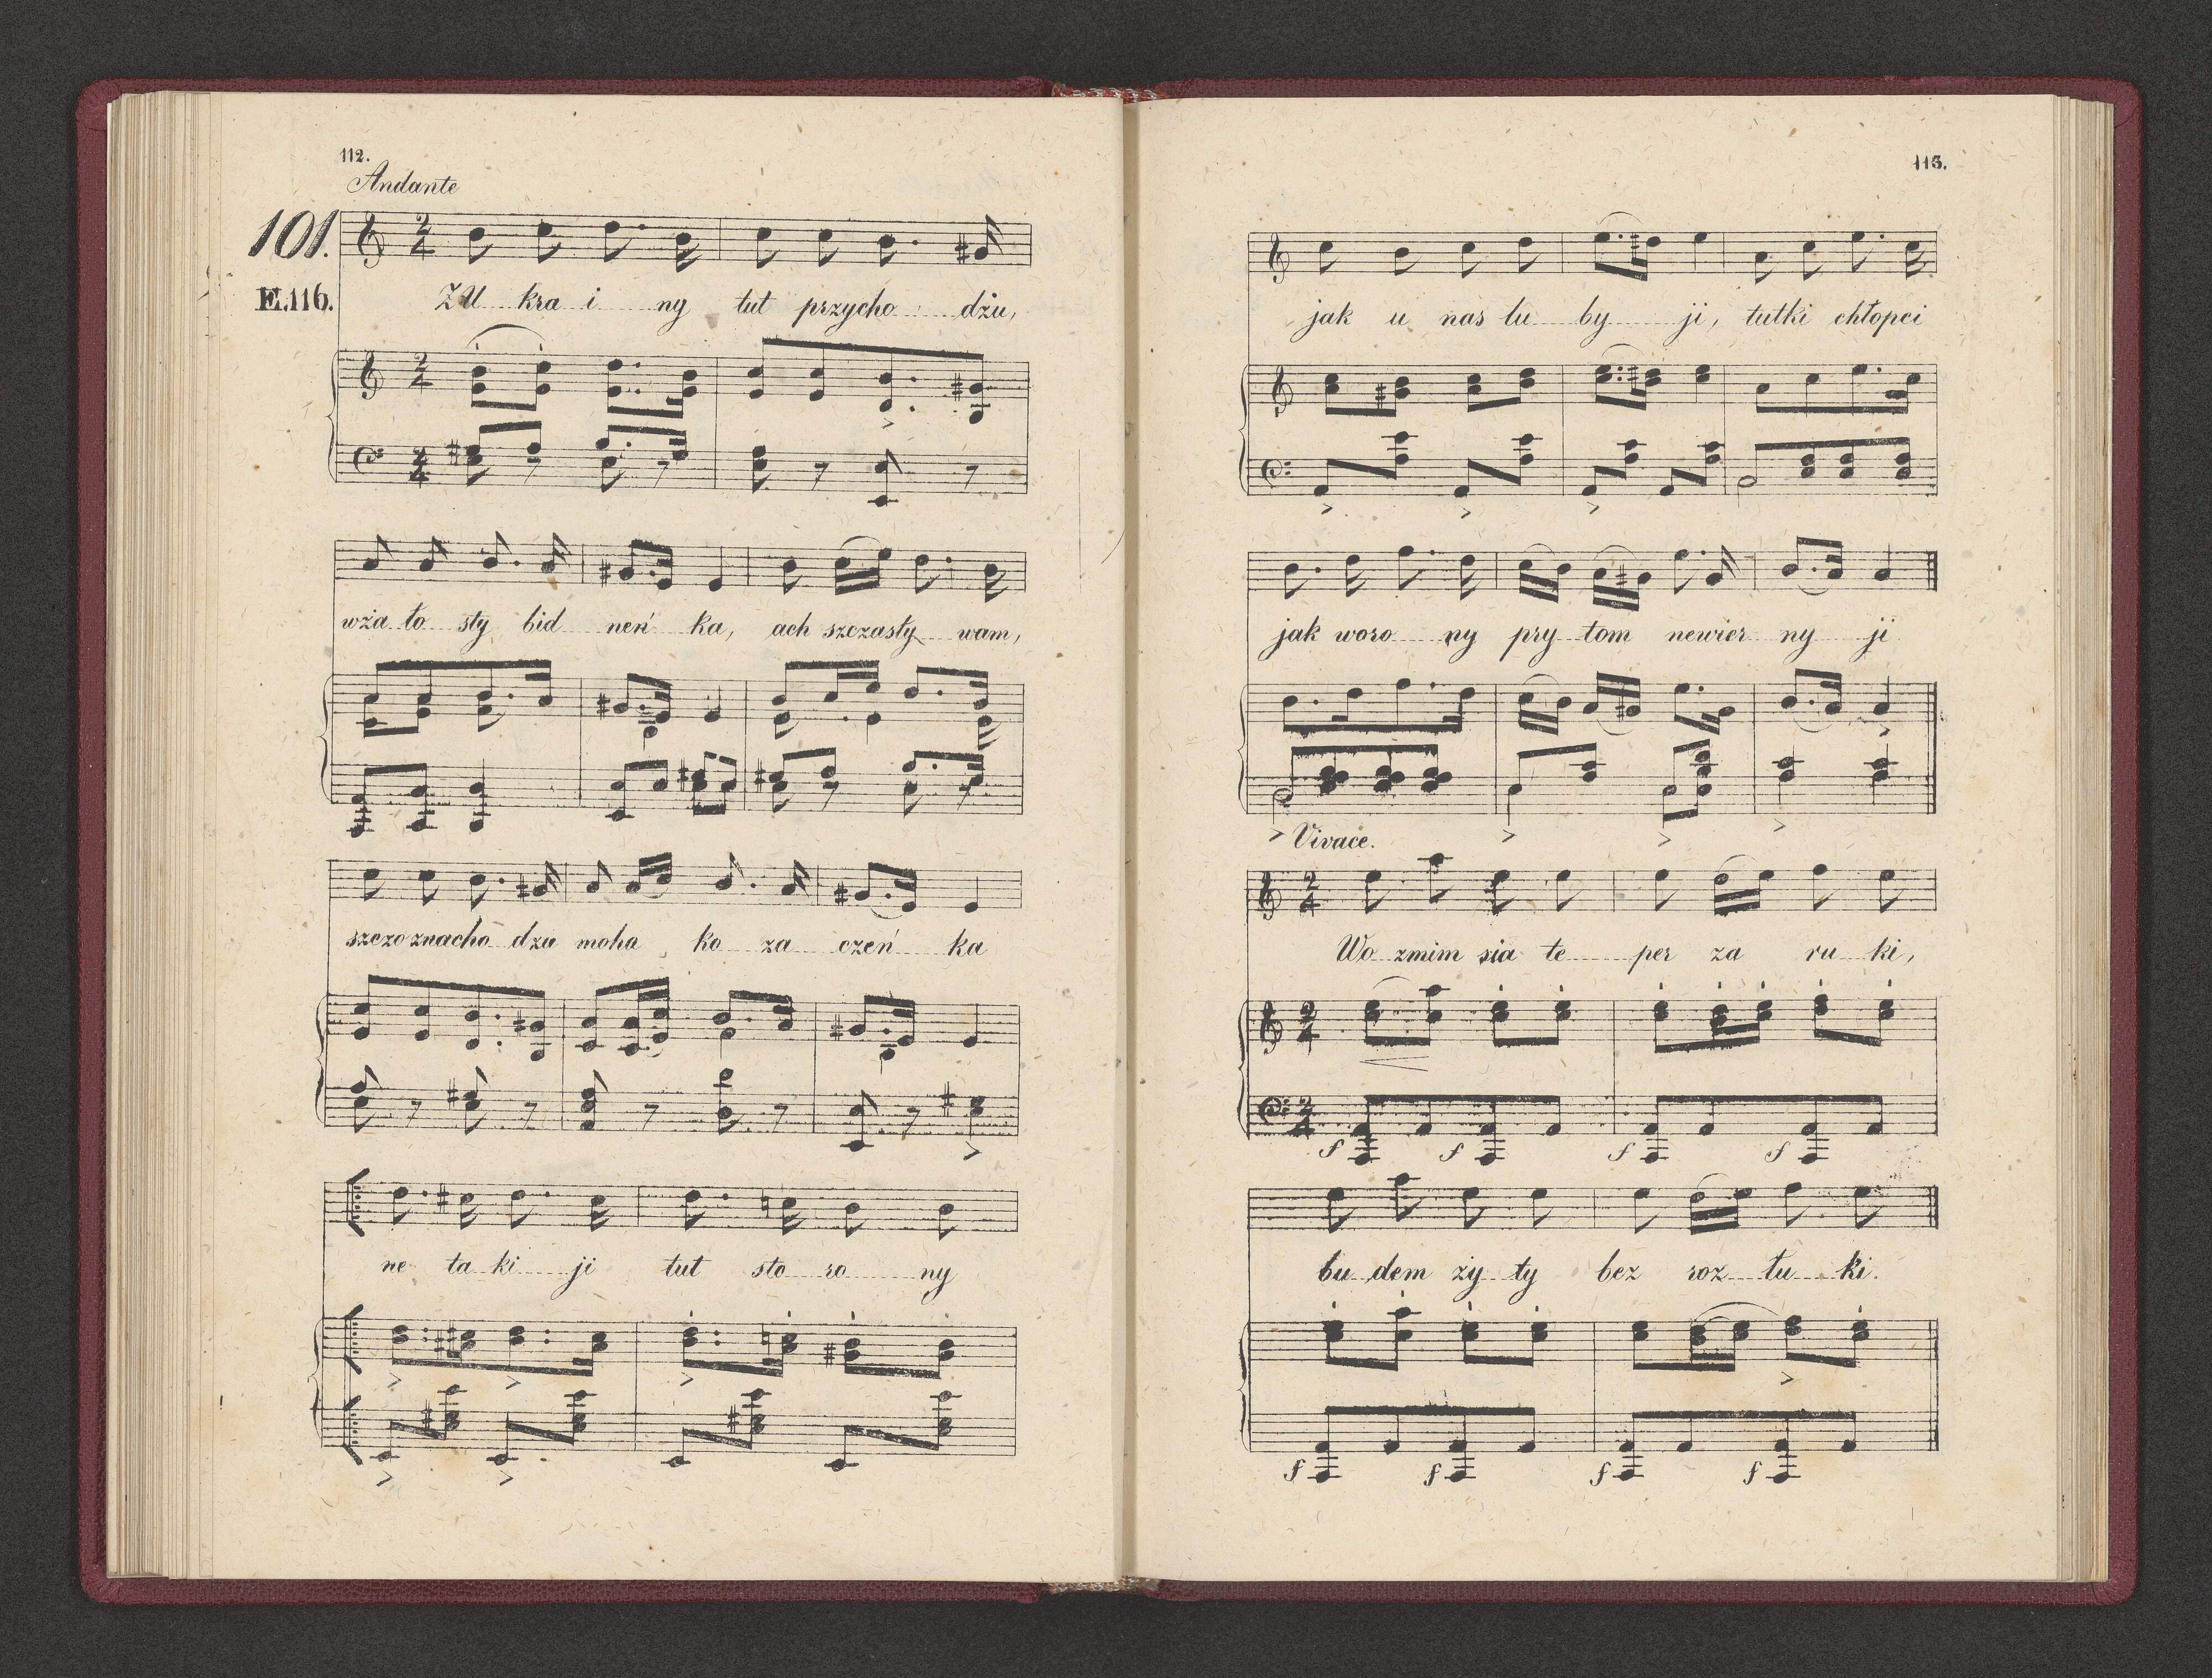 112.
Andante
101.
E.116.
ZU kra i ny tut przycho dżu,
wża ło sty bid neń ka, ach szczasły wam,
szczo znacho dzu moha ko za czeń ka
ne ta ki ji tut sto ro ny
113.
jak u nas lu by ji, tutki chłopci
jak woro ny pry tom newier ny ji
Vivace.
Wo zmim sia te per za ru ki,
f f f f
bu dem zy ty bez roz łu ki.
f f f f